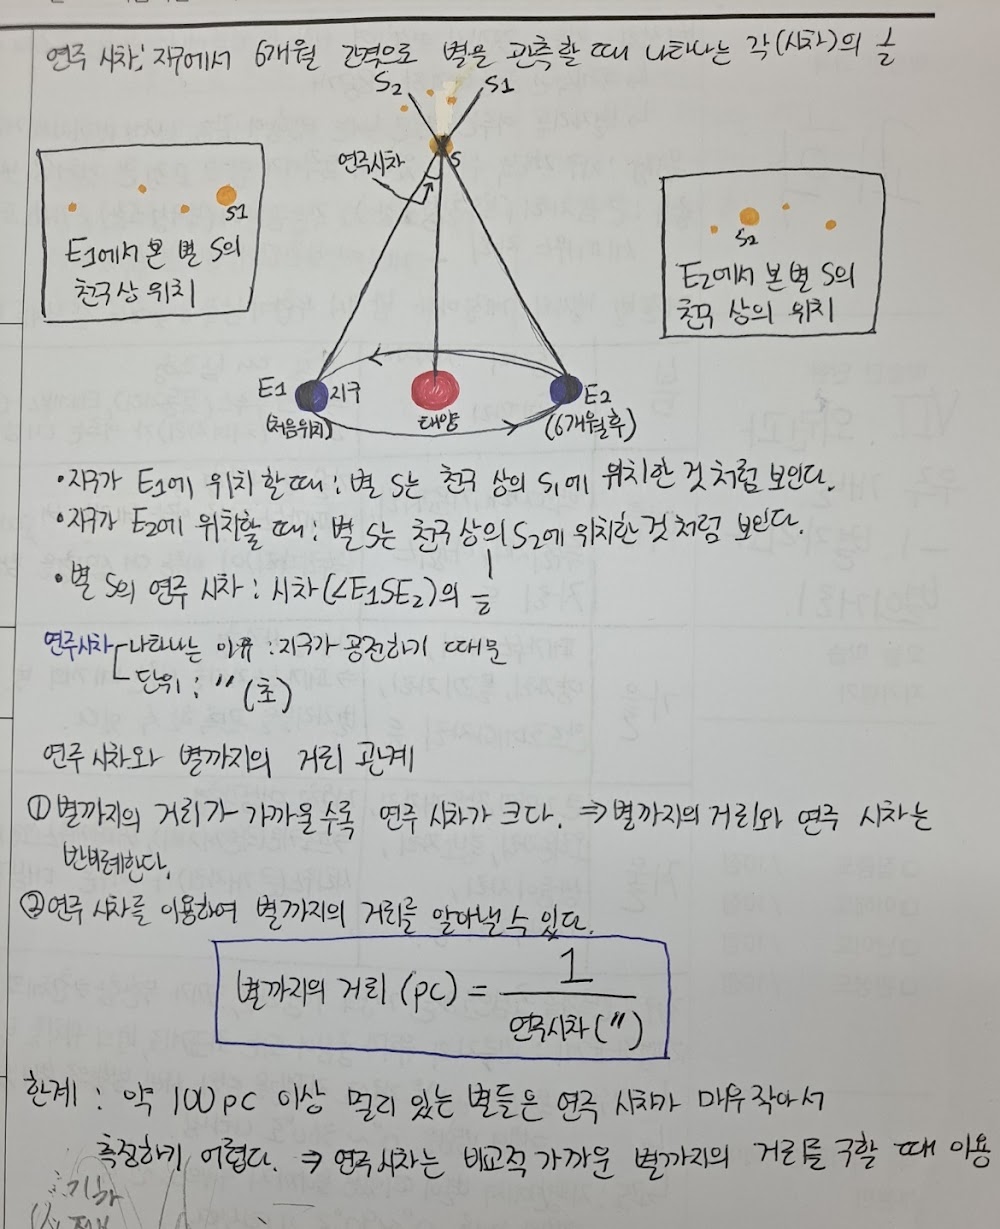 연주 시차: 지구에서 6개월 간격으로 별을 관측할 때 나타나는 각(시차)의 1/2
S2 S1
S
연주시차
S1
E1에서 본 별 S의
천구 상 위치
S2
E2에서 본 별 S의
천구 상의 위치
E1 지구
(처음위치)
태양
E2
(6개월 후)
• 지구가 E1에 위치할 때 : 별 S는 천구 상의 S1에 위치한 것처럼 보인다.
• 지구가 E2에 위치할 때 : 별 S는 천구 상의 S2에 위치한 것처럼 보인다.
• 별 S의 연주 시차 : 시차(∠E1SE2)의 1/2
연주시차 나타나는 이유 : 지구가 공전하기 때문
단위 : ″(초)
연주 시차와 별까지의 거리 관계
① 별까지의 거리가 가까울수록 연주 시차가 크다. ⇒ 별까지의 거리와 연주 시차는
반비례한다.
② 연주 시차를 이용하여 별까지의 거리를 알아낼 수 있다.
별까지의 거리 (pc) = 1 / 연주시차(″)
한계 : 약 100pc 이상 멀리 있는 별들은 연주 시차가 매우 작아서
측정하기 어렵다. ⇒ 연주시차는 비교적 가까운 별까지의 거리를 구할 때 이용